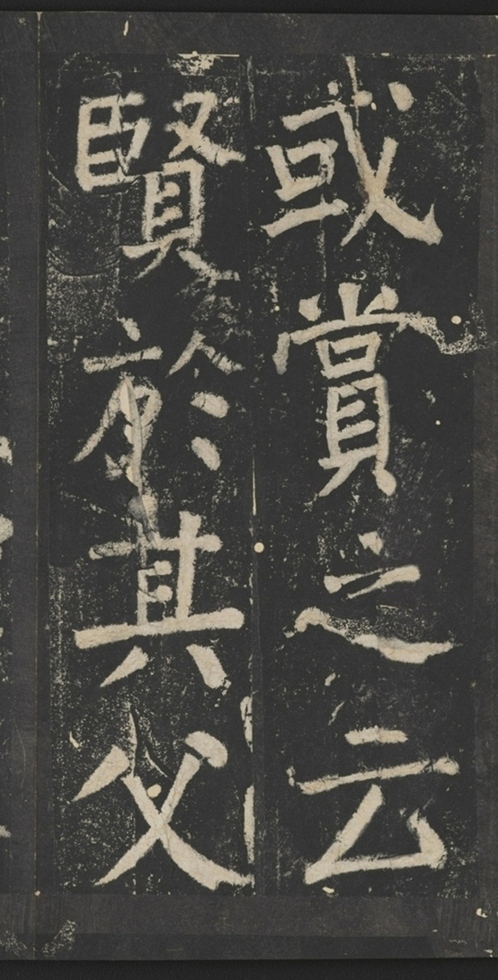 或賞之云
賢於其父